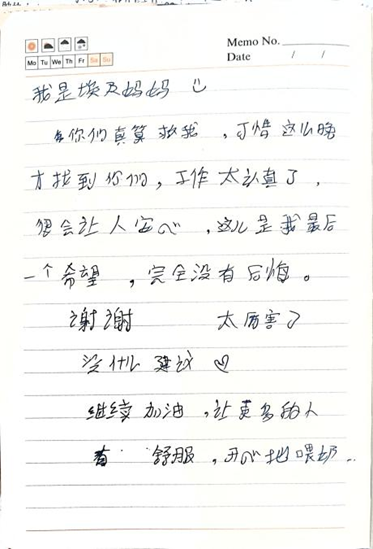 Memo No.
Mo Tu We Th Fr Sa Su
Date / /
我是埃及妈妈
你们真算救我，可惜这么晚
才找到你们，工作太认真了，
很会让人安心，这儿是我最后
一个希望，完全没有后悔。
谢谢 太厉害了
没什么建议
继续加油，让更多的人
舒服，开心地喂奶..